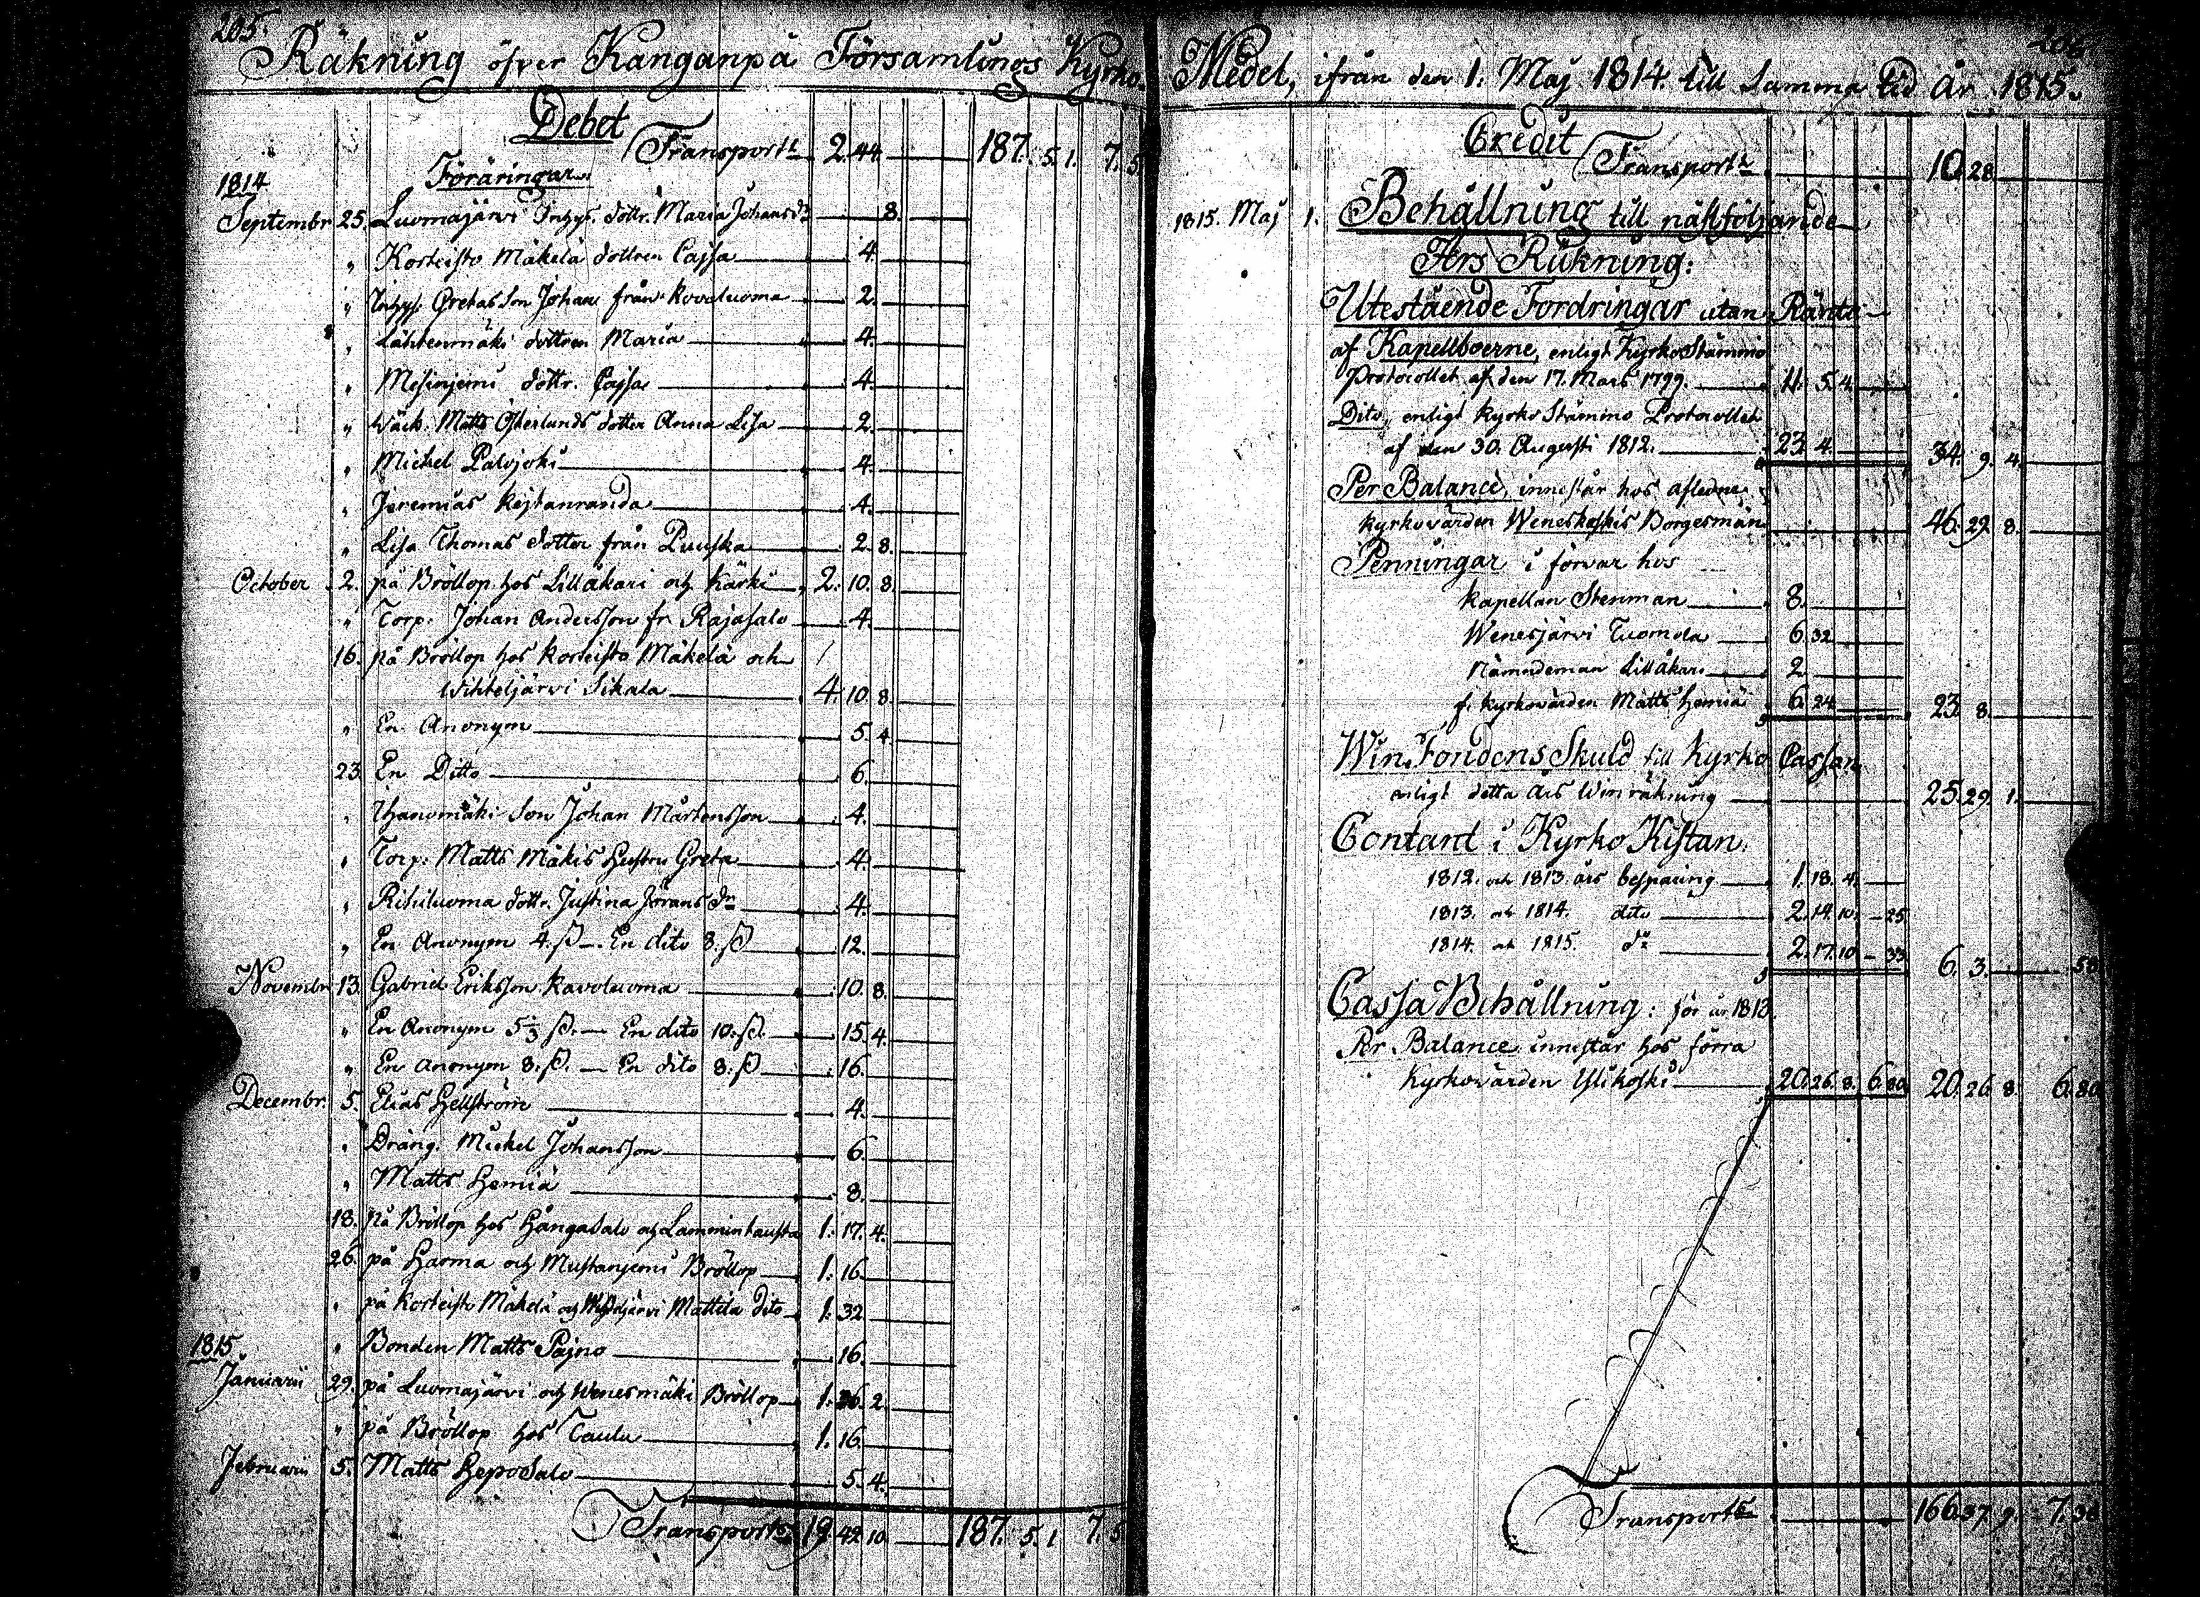 205.
Räkning öfver Kanganpä Församlings Kyrko-
Debet
Transport 2. 44. 187. 5. 1. 7. 5
1814
Föräringar
Septembr 25. Luomajärvi Inhys. dottr. Maria Johansdr 8.
" Korteisto Mäkelä dottren Cajsa 4.
" Inhys. Gretas Son Johan från Kovoluoma 2.
" Lähtenmäki dottren Maria 4.
" Mesinjemi dottr. Cajsa 4.
" Matts Österlunds dotter Anna Lisa 2.
" Michel Palojoki 4.
" Jeremias Kejtanranda 4.
" Lisa Thomas dotter från Puuska 2. 8.
October 2. på Bröllop hos Lillakari och Kärki 2. 10. 8.
" Torp. Johan Andersson fr. Rajasalo 4.
16. på Bröllop hos Korteisto Mäkelä och
Wihteljärvi Sikala 4. 10. 8.
" En Anonym 5. 4.
23. En Ditto 6.
" Son Johan Mårtensson 4.
" Torp. Matts Mäkis Hustru Greta 4.
" Rihiluoma dottr. Justina Jörans dr 4.
" En Anonym 4. ß — En dito 8. ß 12.
Novembr 13. Gabriel Eriksson Kavoluoma 10. 8.
" En Anonym 5 1/3 ß. — En dito 10. ß. 15. 4.
" En Anonym 8. ß. — En dito 8. ß 16.
Decembr. 5. Elias Hellström 4.
" Dräng. Mickel Johansson 6.
" Matts Hemiä 8.
18. På Bröllop hos Hångasalo och Lamminhausta 1. 17. 4.
26. på Harma och Mustanjemi Bröllop 1. 16.
" på Korteisto Mäkelä och Mattila dito 1. 32
1815.
" Bonden Matts Pajno 16.
Januarii 29. på Luomajärvi och Wenesmäki Bröllop 1. 26. 2.
" på Bröllop hos Taulu 1. 16.
Februarii 5. Matts Heposalo 5. 4.
Transport 19. 42. 10. 187. 5. 1 7. 5
206
Medel, ifrån den 1. Maj 1814. till samma tid år 1815.
Credit
Transport 10. 28
1815. Maj 1. Behållning till nästföljande
Års Räkning:
Utestående Fordringar utan Ränta
af Kapellboerne, enligt Kyrko Stämmo
Protocollet af den 17. Mars 1799. 11. 5. 4.
Dito, enligt Kyrko Stämmo Protocollet
af den 30. Augusti 1812. 23. 4. 34. 9. 4.
Per Balance, innestår hos afledne
Kyrkovärden Weneskoskis Borgesmän 46. 29. 8.
Penningar i förvar hos
Kapellan Stenman 8.
Wenesjärvi Tuomola 6. 32
Nämndeman Lillåkari 2.
f. Kyrkovärden Matts Hemiä 6. 24 23. 8.
Win Fondens Skuld till Kyrko Cassan
enligt detta års Win räkning 25. 29. 1.
Contant i Kyrko Kistan.
1812. och 1813. års besparing 1. 18. 4.
1813. och 1814. dito 2. 14. 10. – 25
1814. och 1815. do 2. 17. 10 – 33 6. 3. 58
Cassa Behållning: för år 1813
Per Balance innestår hos förra
Kyrkovärden Ylikoski 20. 26. 8. 6. 80 20. 26. 8. 6. 80
Transport 166. 37. 9. 7. 38